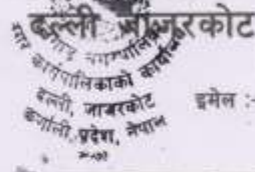 दल्ली जाजरकोट
नगर कार्यपालिकाको कार्यालय
दल्ली, जाजरकोट
कर्णाली प्रदेश, नेपाल
इमेल :-